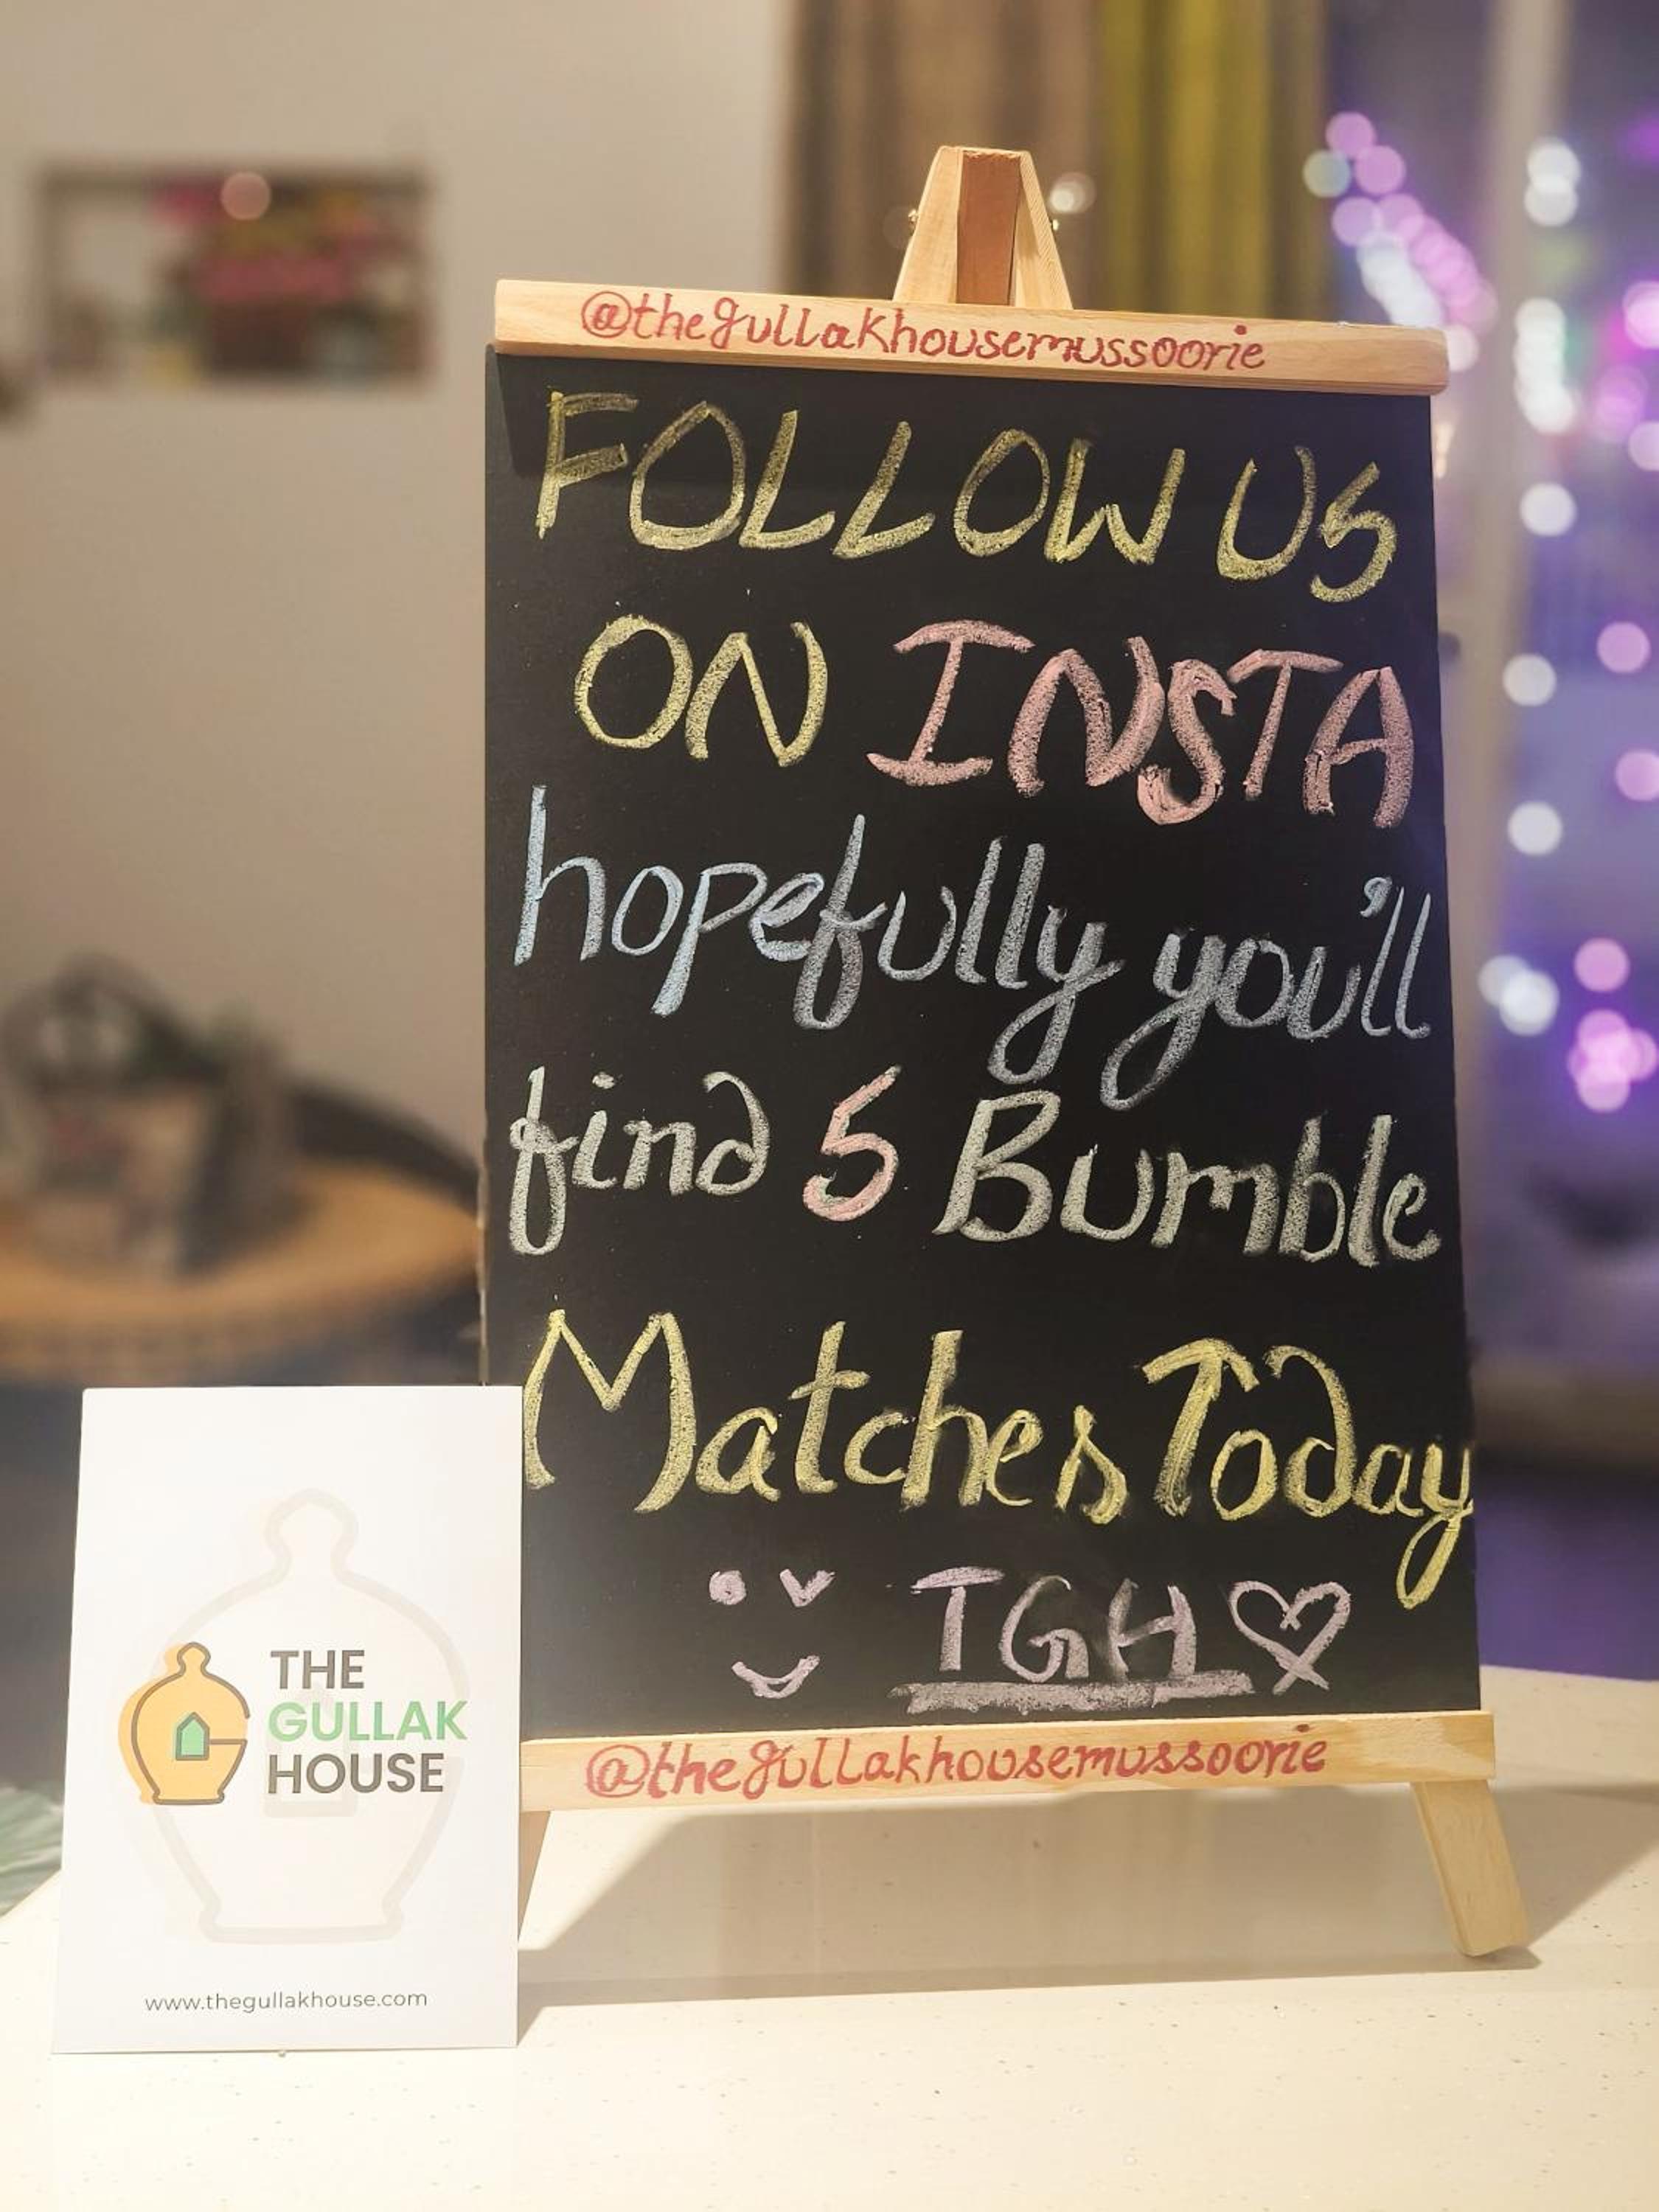 @thegullakhousemussoorie
FOLLOW US
ON INSTA
hopefully you'll
find 5 Bumble
Matches Today
TGH
@thegullakhousemussoorie
THE
GULLAK
HOUSE
www.thegullakhouse.com